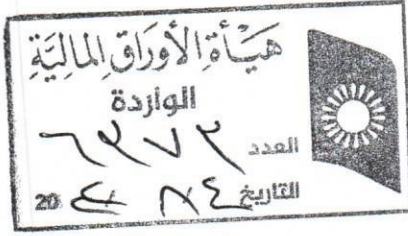 هَيْأَة الأَوْرَاق المَالِيَّة
الواردة
العدد ٦٩٧٢
التاريخ 20